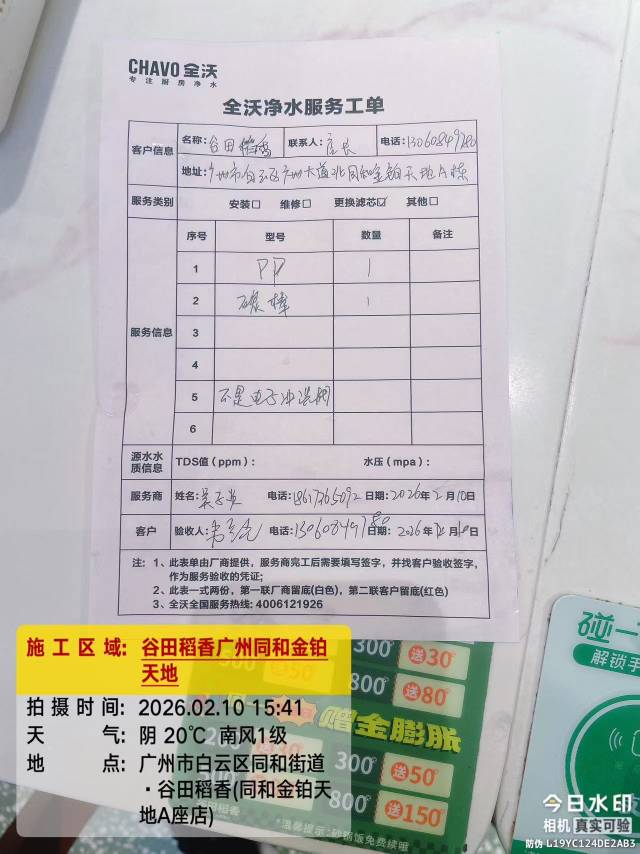 CHAVO 全沃
专注厨房净水
全沃净水服务工单
客户信息
名称: 谷田稻香 联系人: 店长 电话: 13060849780
地址: 广州市白云区广州大道北同和金铂天地A栋
服务类别 安装☐ 维修☐ 更换滤芯☑ 其他☐
服务信息
序号 型号 数量 备注
1 PP 1
2 碳棒 1
3
4
5 不是电子冲洗阀
6
源水水质信息 TDS值(ppm): 水压(mpa):
服务商 姓名: 电话: 日期: 2026年2月10日
客户 验收人: 电话: 13060849780 日期: 2026年2月10日
注: 1、此表单由厂商提供，服务商完工后需要填写签字，并找客户验收签字，
作为服务验收的凭证;
2、此表一式两份，第一联厂商留底(白色)，第二联客户留底(红色)
3、全沃全国服务热线: 4006121926
500 送50
300 送30
800 送80
赠金膨胀
300 送50
800 送150
谷田稻香
温馨提示: 砂锅饭免费续哦
碰一
解锁手
施工区域: 谷田稻香广州同和金铂
天地
拍摄时间: 2026.02.10 15:41
天气: 阴 20℃ 南风1级
地点: 广州市白云区同和街道
·谷田稻香(同和金铂天
地A座店)
今日水印
相机 真实可验
防伪 L19YC124DE2AB3